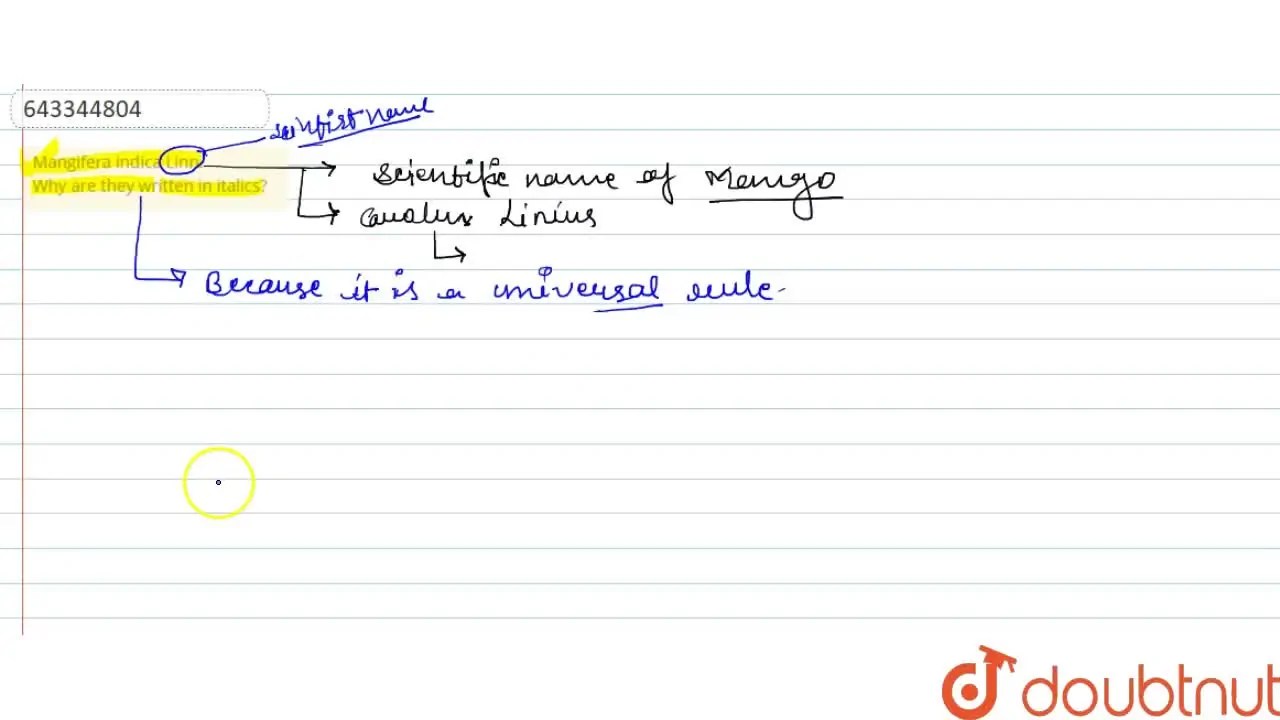 643344804
scintist name
Mangifera indica Linn
Why are they written in italics?
Scientific name of Mango
Carolus Linius
Because it is a universal rule.
doubtnut